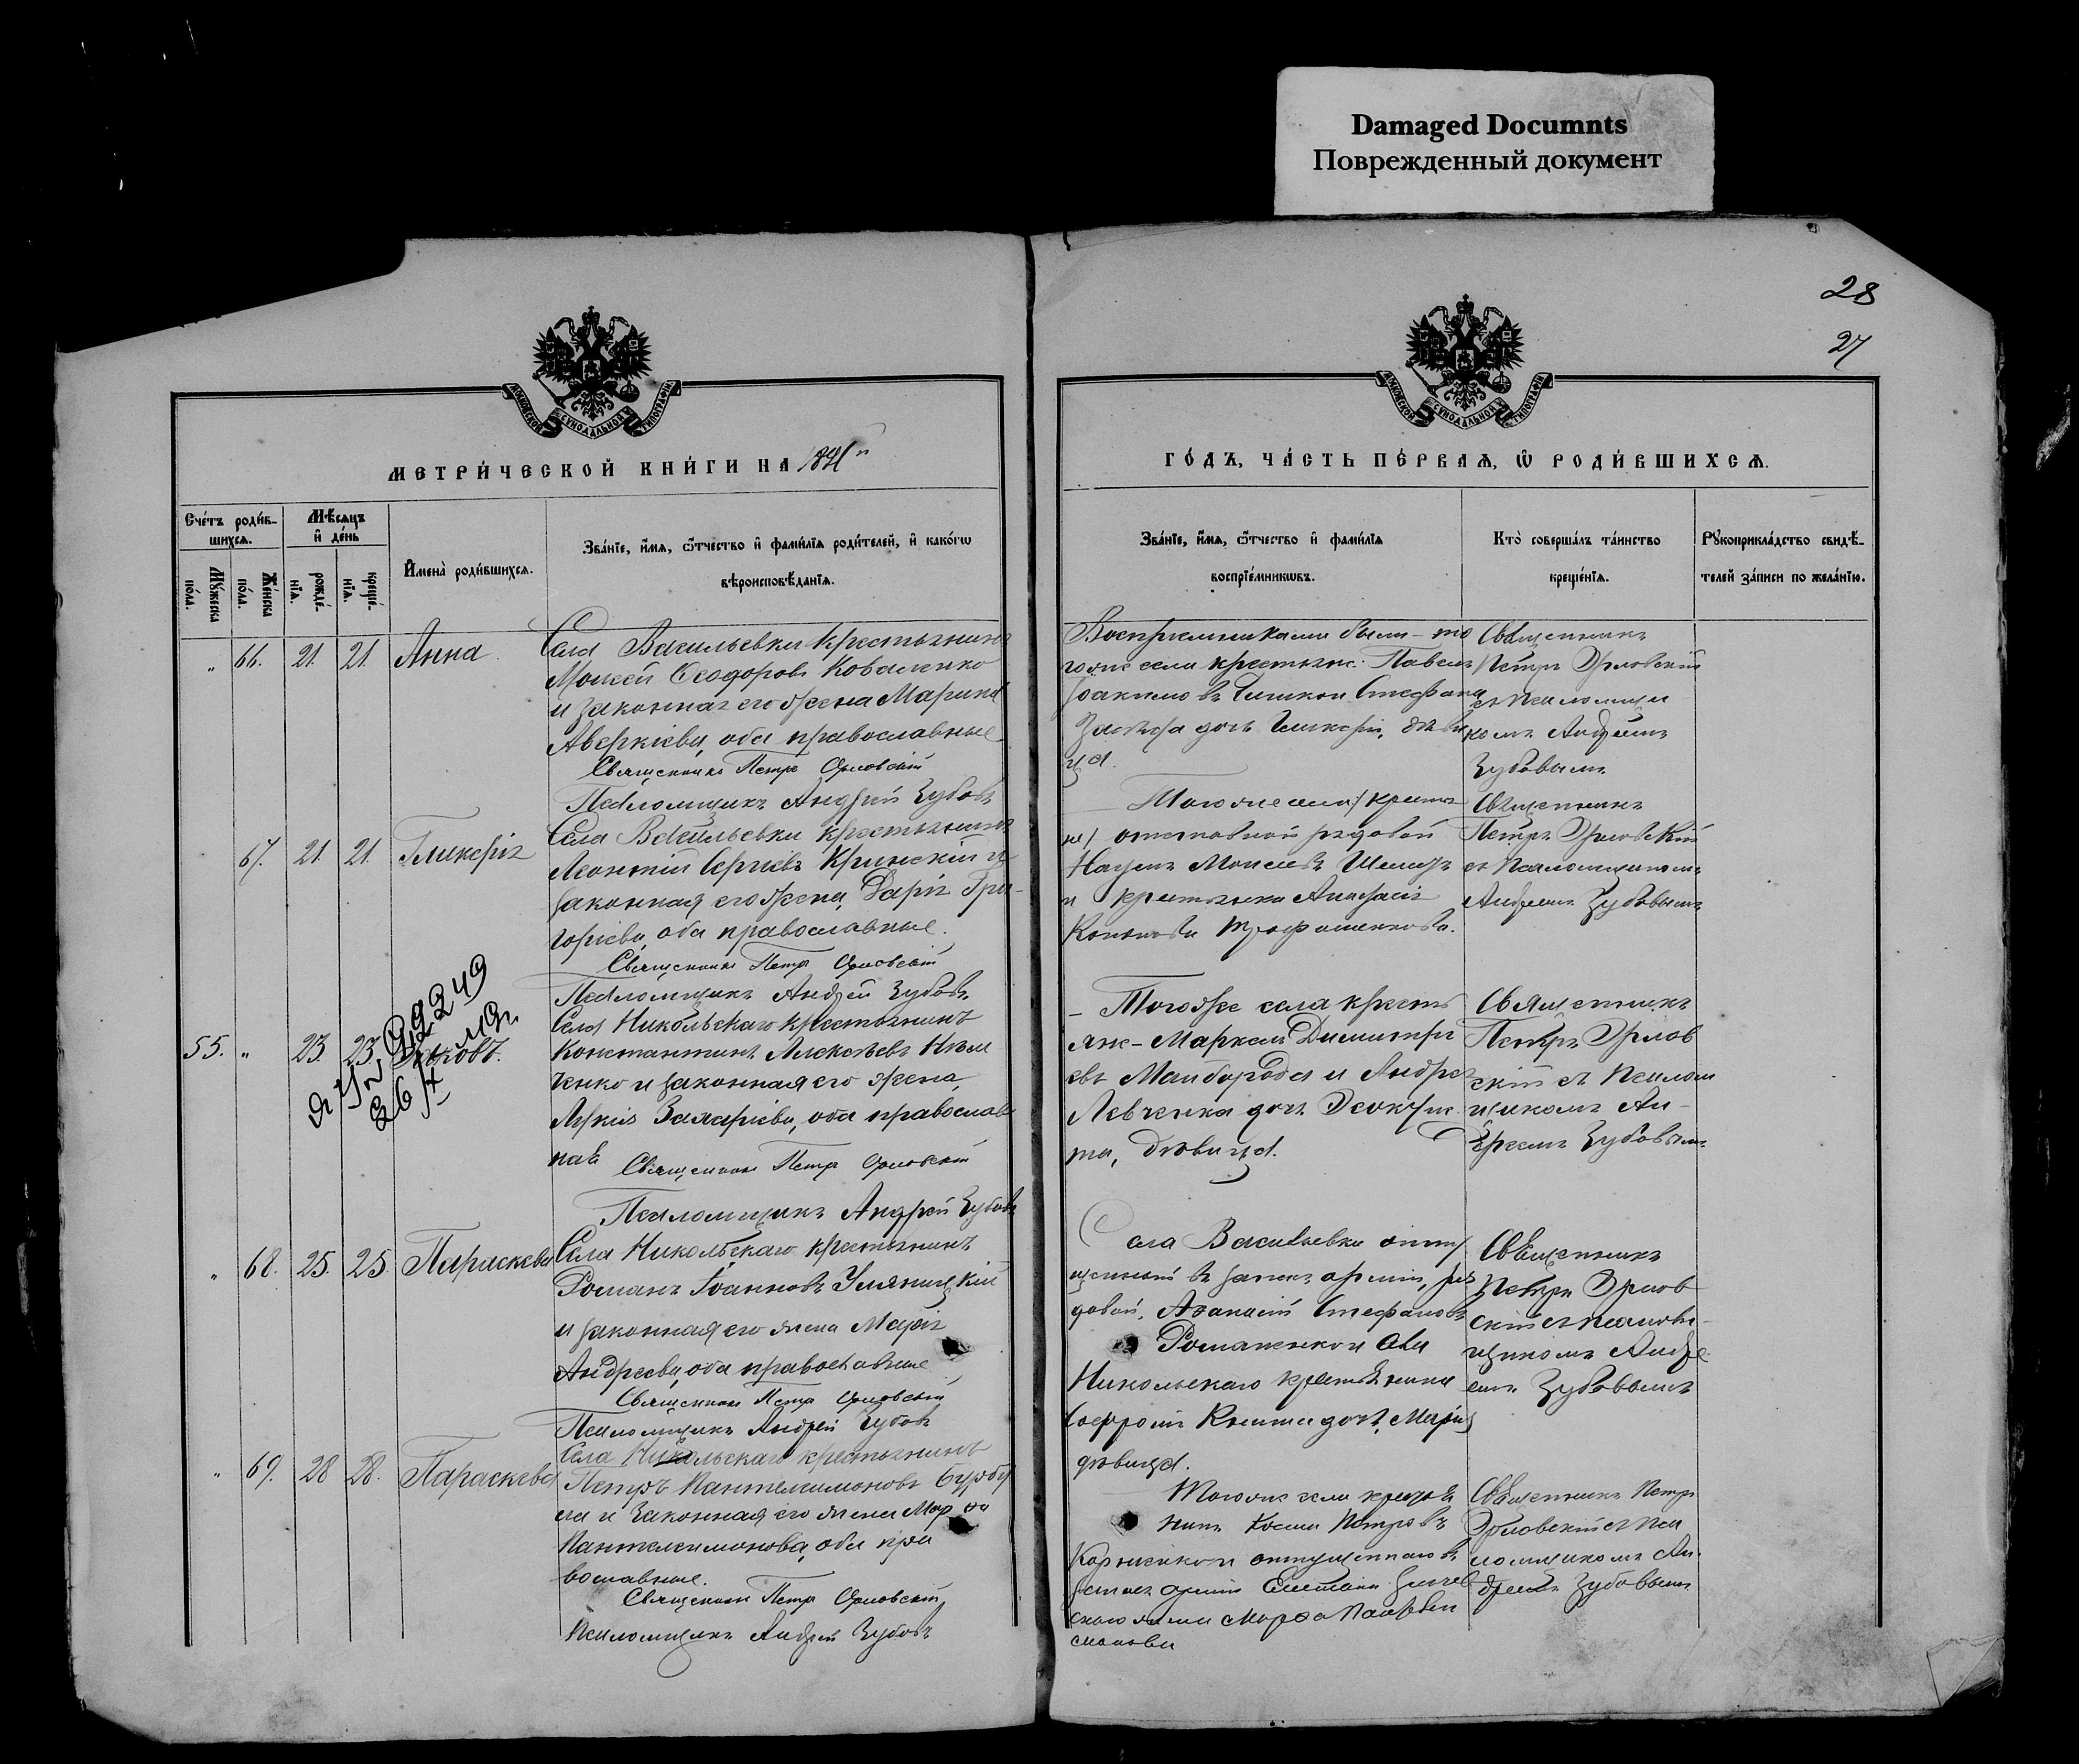 Damaged Documnts
Поврежденный документ
28
27
МОСКОВСКОЙ СУНОДАЛЬНОЙ ТИПОГРАФІИ
МОСКОВСКОЙ СУНОДАЛЬНОЙ ТИПОГРАФІИ
МЕТРИ́ЧЕСКОЙ КНИ́ГИ НА
ГО́ДЪ, ЧА́СТЬ ПЕ́РВАѦ, Ѿ РОДИ́ВШИХСѦ.
Сче́тъ роди́в-
шихсѧ.
Мѣ́сѧцъ
и҆ де́нь
Мꙋ́жеска
по́ла.
Же́нска
по́ла.
рожде́-
нїѧ.
креще́-
нїѧ.
И҆мена̀ роди́вшихсѧ.
Зва́нїе, и҆́мѧ, ѻ҆́тчество и҆ фами́лїѧ роди́телей, и҆ како́гѡ
вѣроисповѣ́данїѧ.
Зва́нїе, и҆́мѧ, ѻ҆́тчество и҆ фами́лїѧ
воспрїе́мникѡвъ.
Кто̀ соверша́лъ та́инство
креще́нїѧ.
Рꙋкоприкла́дство свидѣ́-
телей за́писи по жела́нїю.
" 66. 21. 21. Анна
Села Васильевки крестьянинъ
Моисей Ѳеодоровъ Коваленко
и законная его жена Марина
Аверкіева, оба православные
Священникъ Петръ Орловскій
Псаломщикъ Андрей Зубовъ
Воспріемниками были - то
гоже села крестьяне: Павелъ
Іоакимовъ и Стефана
дочь Гликерія, дѣви
ца.
Священникъ
Петръ Орловскій
съ псаломщи
комъ Андреемъ
Зубовымъ
67. 21. 21. Гликерія
Села Васильевки крестьянинъ
Леонтій Сергіевъ Кринскій и
законная его жена Дарія Гри-
горіева, оба православные.
Священникъ Петръ Орловскій
Псаломщикъ Андрей Зубовъ
Тогоже села
отставной рядовой
Наумъ Моисеевъ
и крестьянка Анастасія
Трофименкова.
Священникъ
Петръ Орловскій
съ псаломщикомъ
Андреемъ Зубовымъ
55. " 23. 23. Іаковъ.
Села Никольскаго крестьянинъ
Константинъ Алексѣевъ Нѣм
ченко и законная его жена
Захаріева, оба православ
ные
Священникъ Петръ Орловскій
Псаломщикъ Андрей Зубовъ
- Тогоже села кресть
яне - Маркелъ Димитрі
евъ Майборода и Андрея
Левченка дочь Ѳеокти
ста, дѣвица.
Священникъ
Петръ Орлов
скій съ псалом
щикомъ Ан-
дреемъ Зубовымъ
" 68. 25. 25. Параскева
Села Никольскаго крестьянинъ
Романъ Іоанновъ Уляницкій
и законная его жена Марія
Андреева, оба православные
Священникъ Петръ Орловскій
Псаломщикъ Андрей Зубовъ
Села Васильевки отпу
щенный въ запасъ арміи, ря
довой, Аѳанасій Стефановъ
Романенко и села
Никольскаго крестьянина
дочь, Марія
дѣвица.
Священникъ
Петръ Орлов
скій съ псаломщи-
комъ Андре
емъ Зубовымъ
" 69. 28 28. Параскева
Села Никольскаго крестьянинъ
Петръ Пантелеимоновъ Бурбы
ла и законная его жена Марѳа
Пантелеимонова, оба пра
вославные.
Священникъ Петръ Орловскій
Псаломщикъ Андрей Зубовъ
Тогоже села крестья
нинъ Косма Петровъ
Корніенко и отпущеннаго въ
запасъ арміи
жена Марѳа Пантелеи
монова
Священникъ Петръ
Орловскій съ пса
ломщикомъ Ан-
дреемъ Зубовымъ